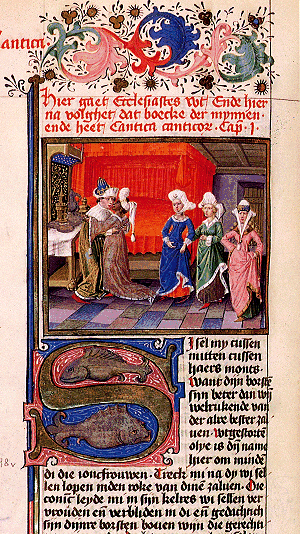 Cantica
Hier gaet Ecclesiastes wt Ende hier
na volghet dat boecke der mynnen
ende heet Cantica canticor Cap I
I sel my cussen
mitten cussen
haers monts
Want dijn borste
sijn beter dan wij
welrukende van
der alre bester zal
uen wtgestorte
olye is dij name
hier om minde
di die ioncfrouwen Treck mi na dy wi sel
len lopen in den roke van dinre zaluen Die
coninc leyde mi in sijn kelres wi sellen ver
vrouden en verbliden in di en gedachtich
sijn dijnre borsten bouen wijn die gerechti